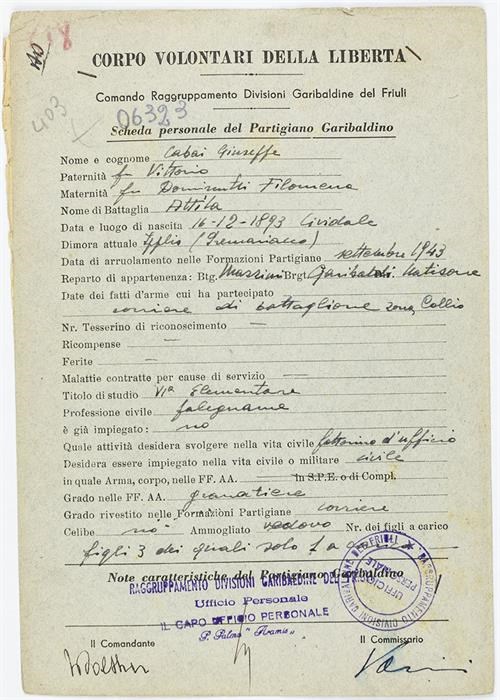 CORPO VOLONTARI DELLA LIBERTA
Comando Raggruppamento Divisioni Garibaldine del Friuli
403
06323
Scheda personale del Partigiano Garibaldino
Nome e cognome Cabai Giuseppe
Paternità fu Vittorio
Maternità fu Filomena
Nome di Battaglia Attila
Data e luogo di nascita 16-12-1893 Cividale
Dimora attuale Ipplis (Premariacco)
Data di arruolamento nelle Formazioni Partigiane settembre 1943
Reparto di appartenenza: Btg. Mazzini Brgt. Garibaldi. Natisone
Date dei fatti d'arme cui ha partecipato
corriere di battaglione zona Collio
Nr. Tesserino di riconoscimento —
Ricompense —
Ferite —
Malattie contratte per cause di servizio —
Titolo di studio VIª Elementare
Professione civile falegname
è già impiegato: no
Quale attività desidera svolgere nella vita civile fattorino d'ufficio
Desidera essere impiegato nella vita civile o militare civile
in quale Arma, corpo, nelle FF. AA. — In S.P.E. o di Compl.
Grado nelle FF. AA. granatiere
Grado rivestito nelle Formazioni Partigiane corriere
Celibe no Ammogliato vedovo Nr. dei figli a carico
figli 3 dei quali solo 1 a
Note caratteristiche del Partigiano Garibaldino
RAGGRUPPAMENTO DIVISIONI GARIBALDINE DEL
Ufficio Personale
IL CAPO UFFICIO PERSONALE
P. Palma "Aramis"
RAGGRUPPAMENTO DIVISIONI GARIBALDINE DEL FRIULI
UFFICIO PERSONALE
Il Comandante Il Commissario